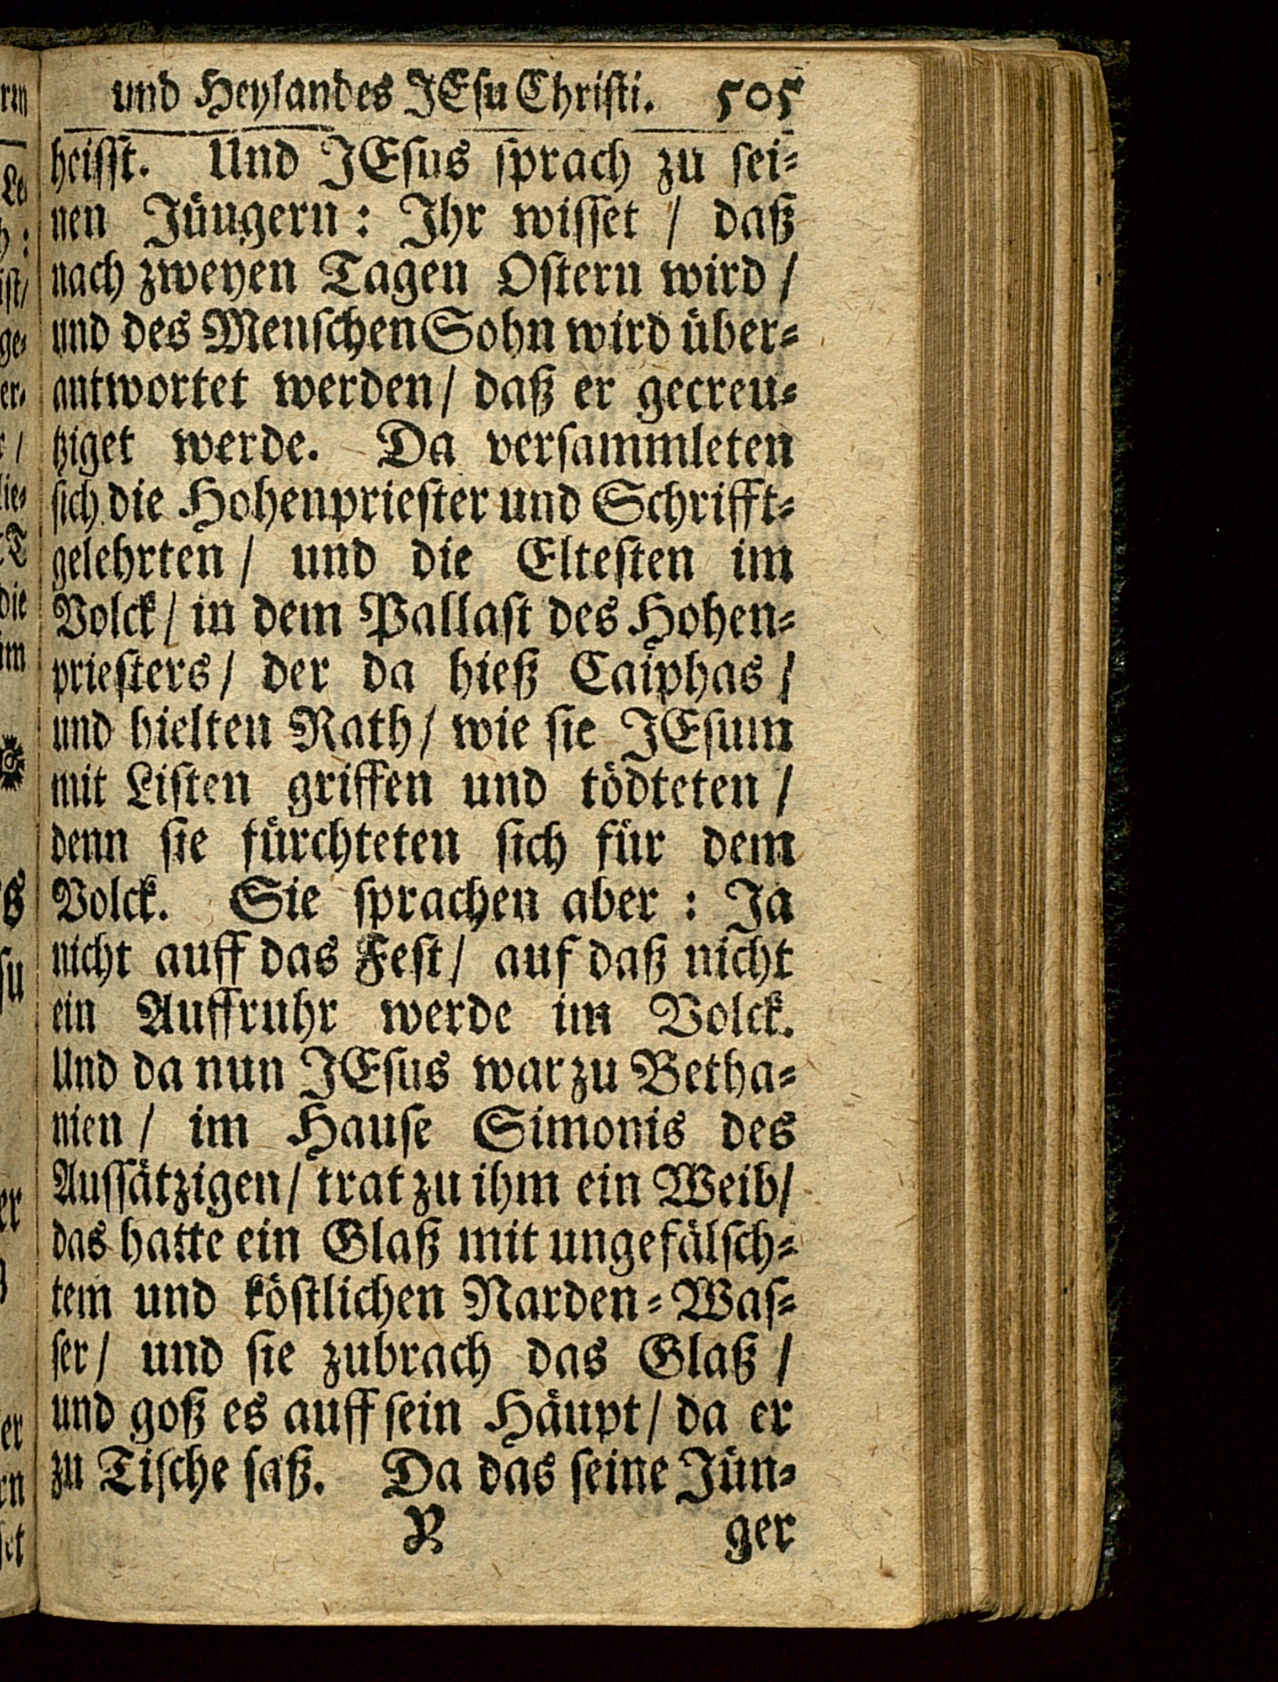 und Heylandes JEsu Christi. 505
heisst. Und JEsus sprach zu sei-
nen Jüngern: Ihr wisset / daß
nach zweyen Tagen Ostern wird /
und des Menschen Sohn wird über-
antwortet werden / daß er gecreu-
tziget werde. Da versammleten
sich die Hohenpriester und Schrifft-
gelehrten / und die Eltesten im
Volck / in dem Pallast des Hohen-
priesters / der da hieß Caiphas /
und hielten Rath / wie sie JEsum
mit Listen griffen und tödteten /
denn sie fürchteten sich für dem
Volck. Sie sprachen aber : Ja
nicht auff das Fest / auf daß nicht
ein Auffruhr werde im Volck.
Und da nun JEsus war zu Betha-
nien / im Hause Simonis des
Aussätzigen / trat zu ihm ein Weib /
das hatte ein Glaß mit ungefälsch-
tem und köstlichen Narden-Was-
ser / und sie zubrach das Glaß /
und goß es auff sein Häupt / da er
zu Tische saß. Da das seine Jün-
ger